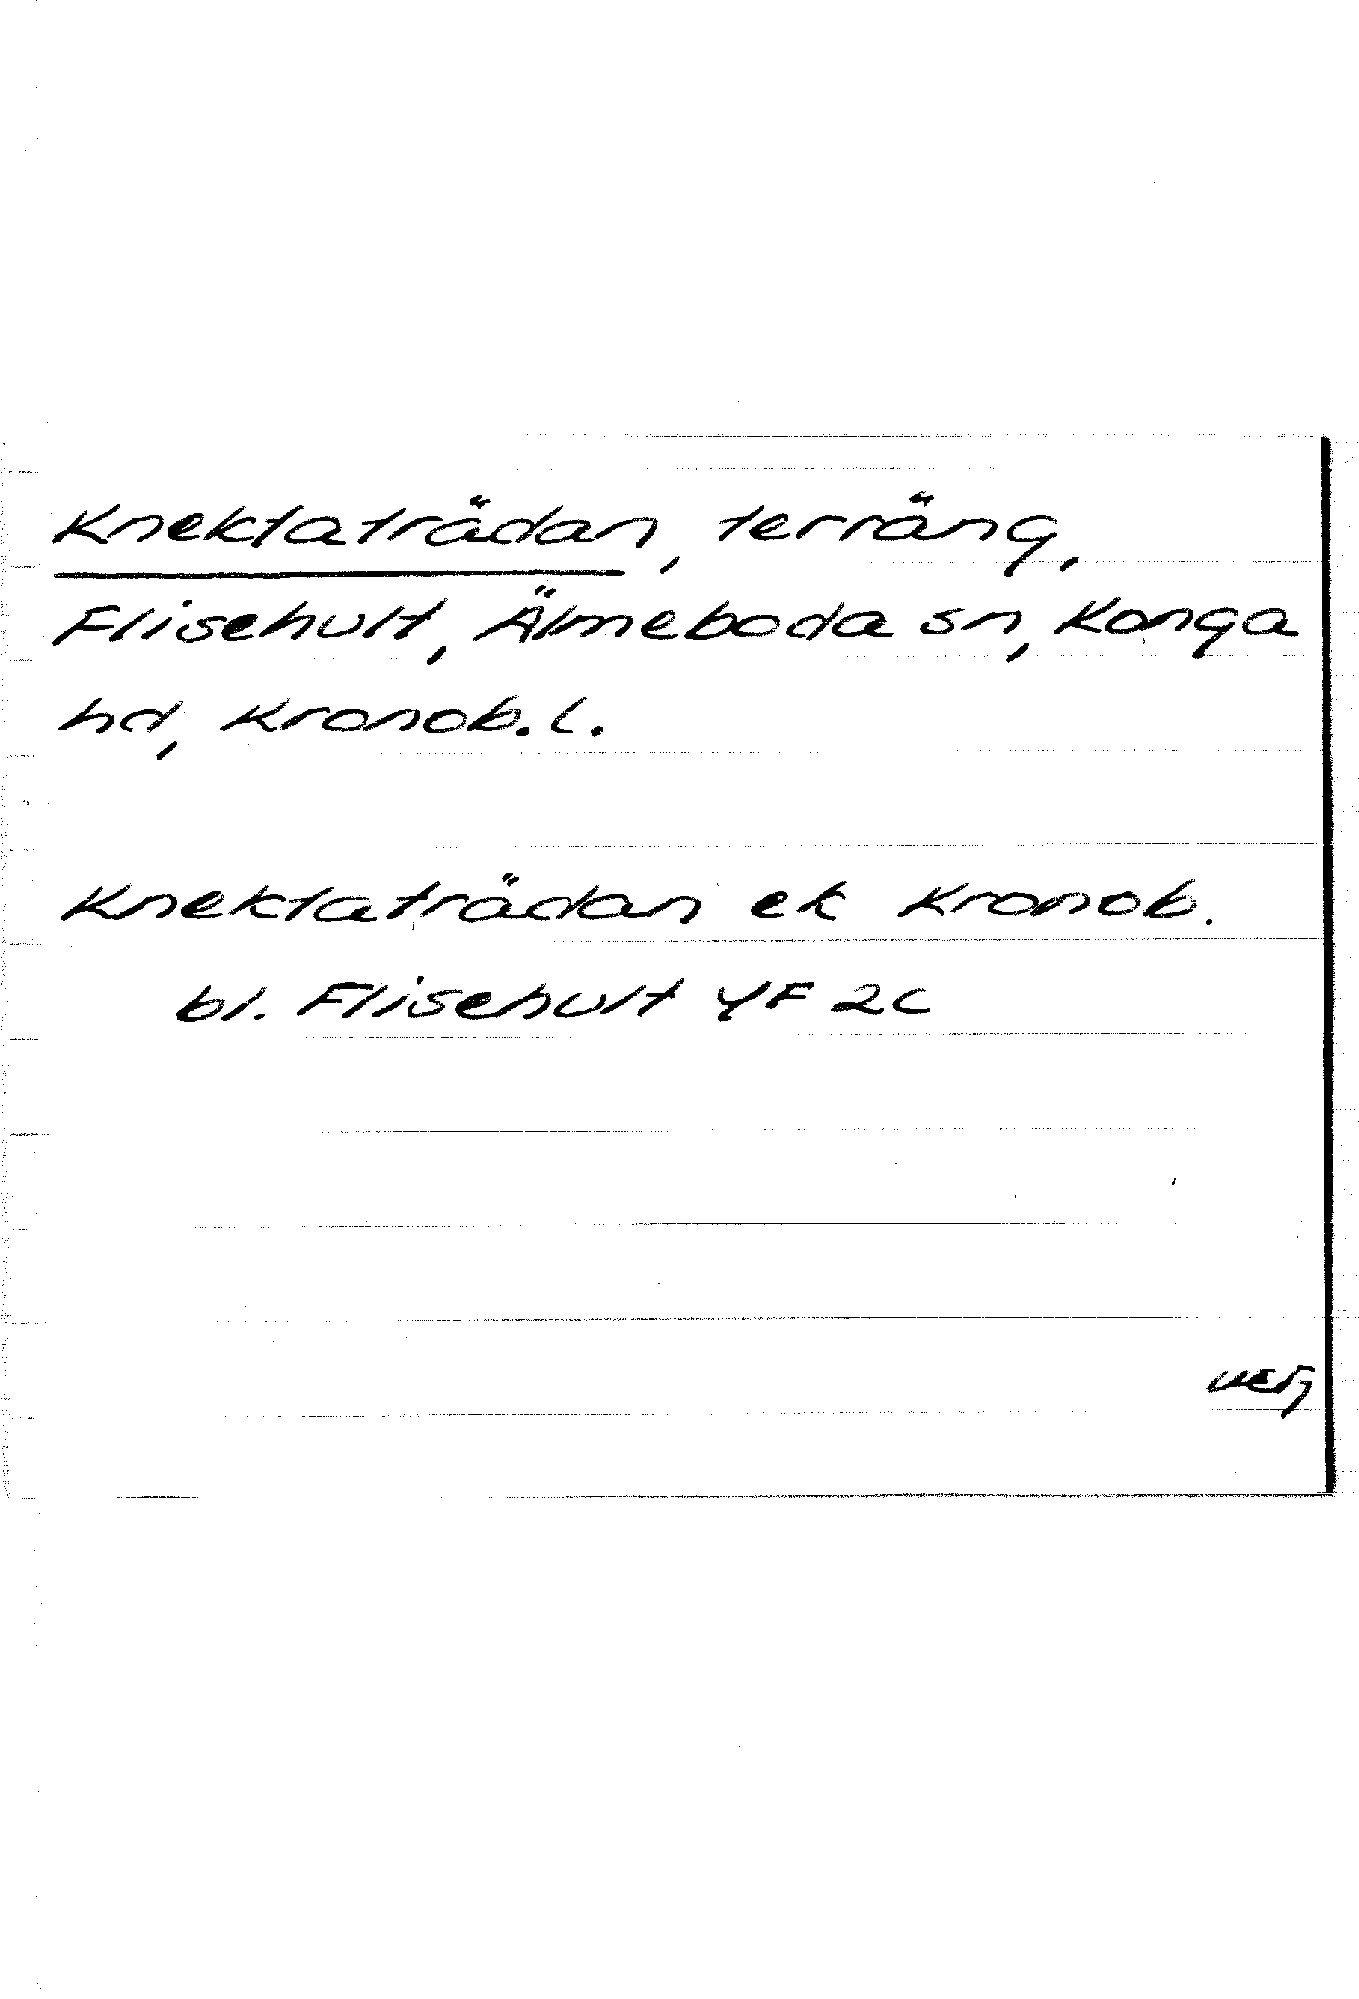 Knektaträdan, terräng,
Flisehult, Älmeboda sn, Konga
hd, Kronob. l.
Knektaträdan ek Kronob.
bl. Flisehult 4F 2c